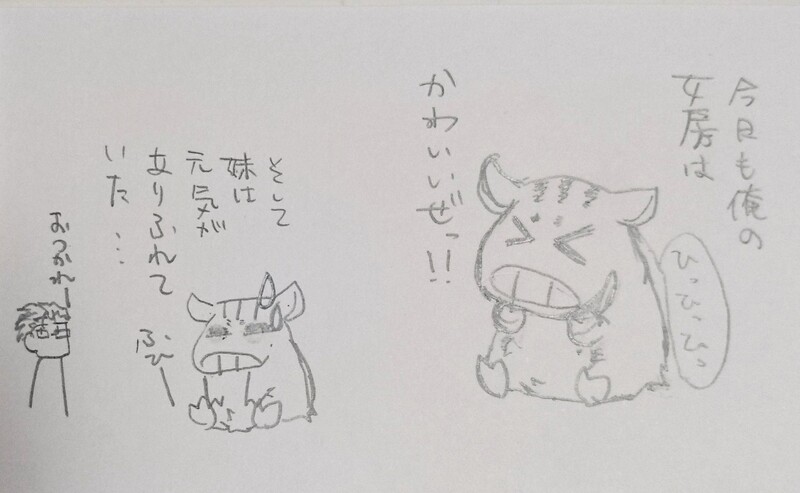 今日も俺の
女房は
かわいいぜっ!!
ひっひっひっ
そして
妹は
元気が
ありふれて
いた…
ふひー
おつかれー